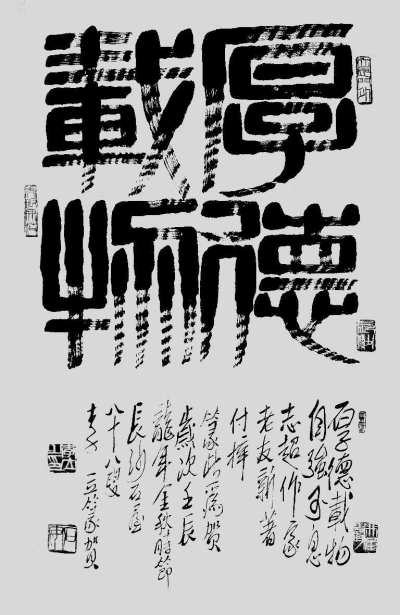 厚德
載物
厚德載物
自強不息
志超作家
老友新著
付梓
篆此為賀
歲次壬辰
龍年金秋時節
長沙
八十八叟
李立篆賀